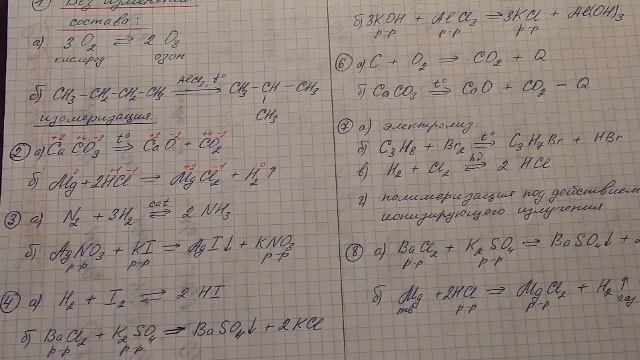 ① Без изменения
состава:
а) 3O₂ ⇌ 2O₃
кислород озон
б) CH₃ – CH₂ – CH₂ – CH₃ —AlCl₃, t°→ CH₃ – CH – CH₃
CH₃
изомеризация
② а) Ca⁺²C⁺⁴O₃⁻² ⇌ t° Ca⁺²O⁻² + C⁺⁴O₂⁻²
б) Mg⁰ + 2H⁺¹Cl⁻¹ → Mg⁺²Cl₂⁻¹ + H₂⁰↑
③ а) N₂ + 3H₂ ⇌ cat 2NH₃
б) AgNO₃ + KI → AgI↓ + KNO₃
р-р р-р р-р
④ а) H₂ + I₂ ⇌ 2HI
б) BaCl₂ + K₂SO₄ → BaSO₄↓ + 2KCl
р-р р-р
б) 3KOH + AlCl₃ → 3KCl + Al(OH)₃
р-р р-р р-р
⑥ а) C + O₂ → CO₂ + Q
б) CaCO₃ ⇌ t° CaO + CO₂ – Q
⑦ а) электролиз
б) C₃H₈ + Br₂ → t° C₃H₇Br + HBr
в) H₂ + Cl₂ → hν 2HCl
г) полимеризация под действием
ионизирующего излучения
⑧ а) BaCl₂ + K₂SO₄ → BaSO₄↓ +
р-р р-р
б) Mg + 2HCl → MgCl₂ + H₂↑
тв р-р р-р газ